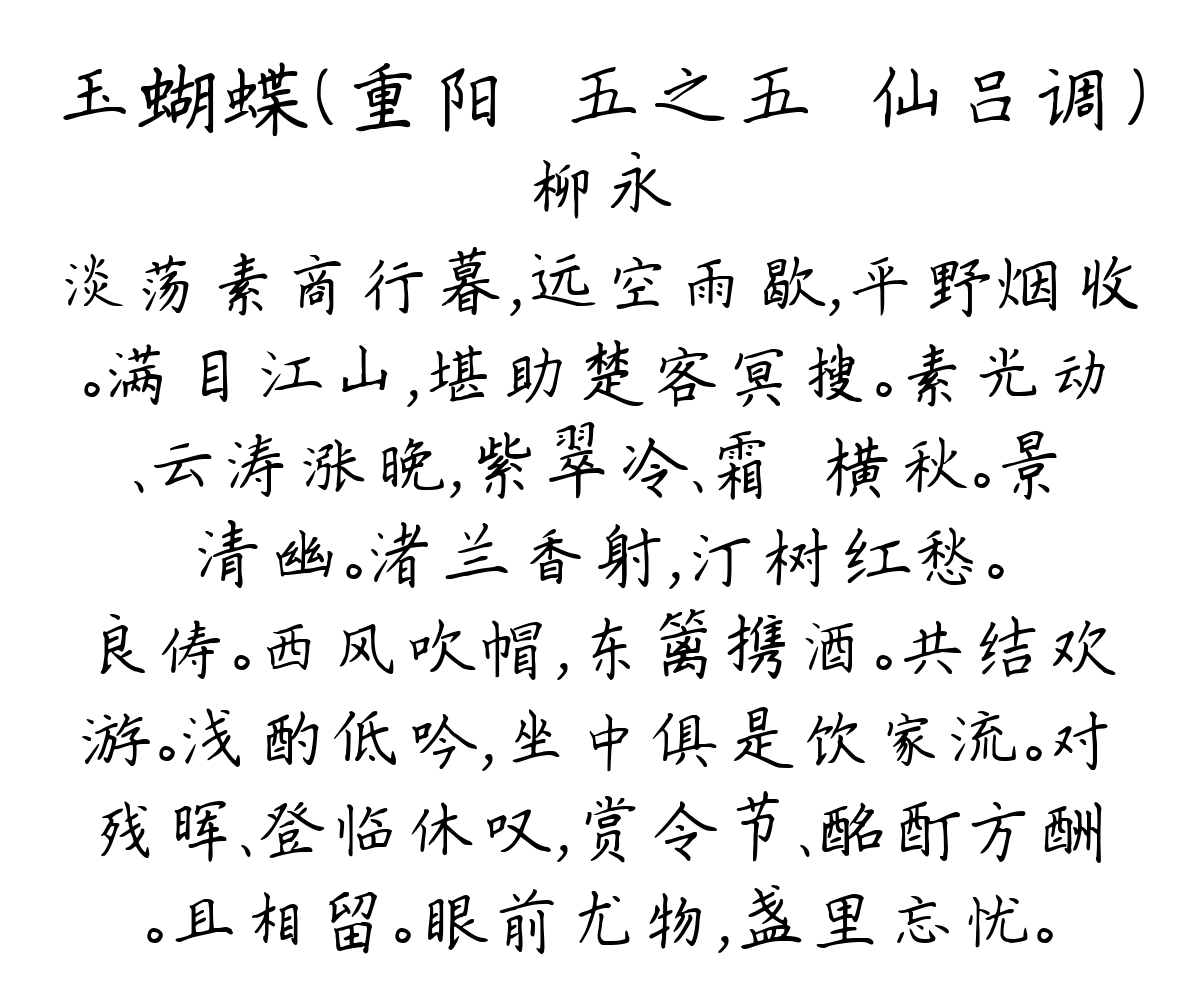 玉蝴蝶(重阳 五之五 仙吕调)
柳永
淡荡素商行暮,远空雨歇,平野烟收
。满目江山,堪助楚客冥搜。素光动
、云涛涨晚,紫翠冷、霜 横秋。景
清幽。渚兰香射,汀树红愁。
良俦。西风吹帽,东篱携酒。共结欢
游。浅酌低吟,坐中俱是饮家流。对
残晖、登临休叹,赏令节、酩酊方酬
。且相留。眼前尤物,盏里忘忧。